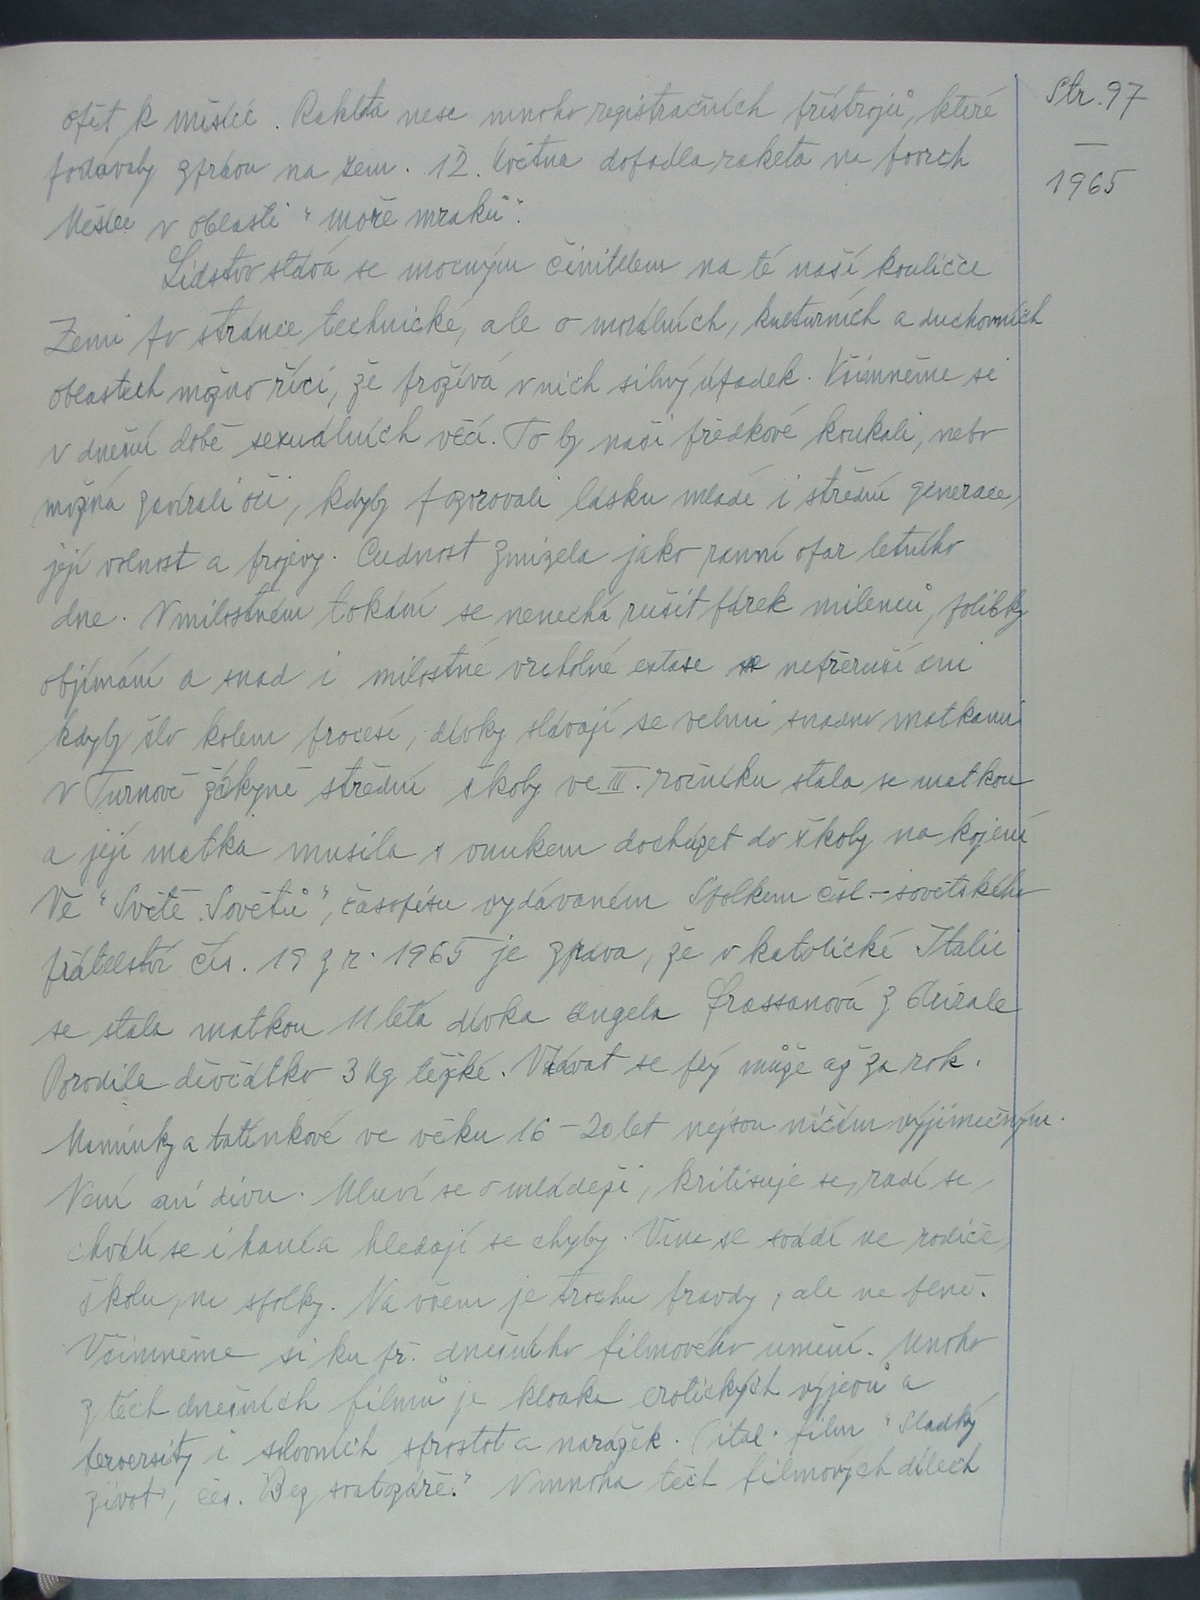 Str. 97
—
1965
opět k měsíci. Raketa nese mnoho registračních přístrojů, které
podávaly zprávu na zem. 12. května dopadla raketa na povrch
Měsíce v oblasti "moře mraků".
Lidstvo stává se mocným činitelem na té naší kouličce
Zemi po stránce technické, ale o morálních, kulturních a duchovních
oblastech možno říci, že prožívá v nich silný úpadek. Všimněme si
v dnešní době sexuálních věcí. To by naši předkové koukali, nebo
možná zavírali oči, kdyby pozorovali lásku mladé i střední generace,
její volnost a projevy. Cudnost zmizela jako ranní opar letního
dne. V milostném tokání se nenechá rušit párek milenců, polibky
objímání a snad i milostné vrcholné extase nepřeruší ani
kdyby šlo kolem procesí, dívky stávají se velmi snadno matkami
v Turnově žákyně střední školy ve III. ročníku stala se matkou
a její matka musila s vnukem docházet do školy na kojení
Ve "Světě Sovětů", časopisu vydávaném Spolkem čsl.-sovětského
přátelství čís. 19 z r. 1965 je zpráva, že v katolické Italii
se stala matkou 11 letá dívka Angela Grassanová z
Porodila děvčátko 3 kg těžké. Vdávat se prý může až za rok.
Maminky a tatínkové ve věku 16 – 20 let nejsou ničím výjimečným.
Není ani divu. Mluví se o mládeži, kritisuje se, radí se,
chválí se i haní a hledají se chyby. Vina se svádí na rodiče,
školu, na spolky. Na všem je trochu pravdy, ale ne plně.
Všimněme si ku př. dnešního filmového umění. Mnoho
z těch dnešních filmů je kloaka erotických výjevů a
perversity i slovních sprostot a narážek. (ital. film "Sladký
život", čes. "Bez svatozáře." V mnoha těch filmových dílech